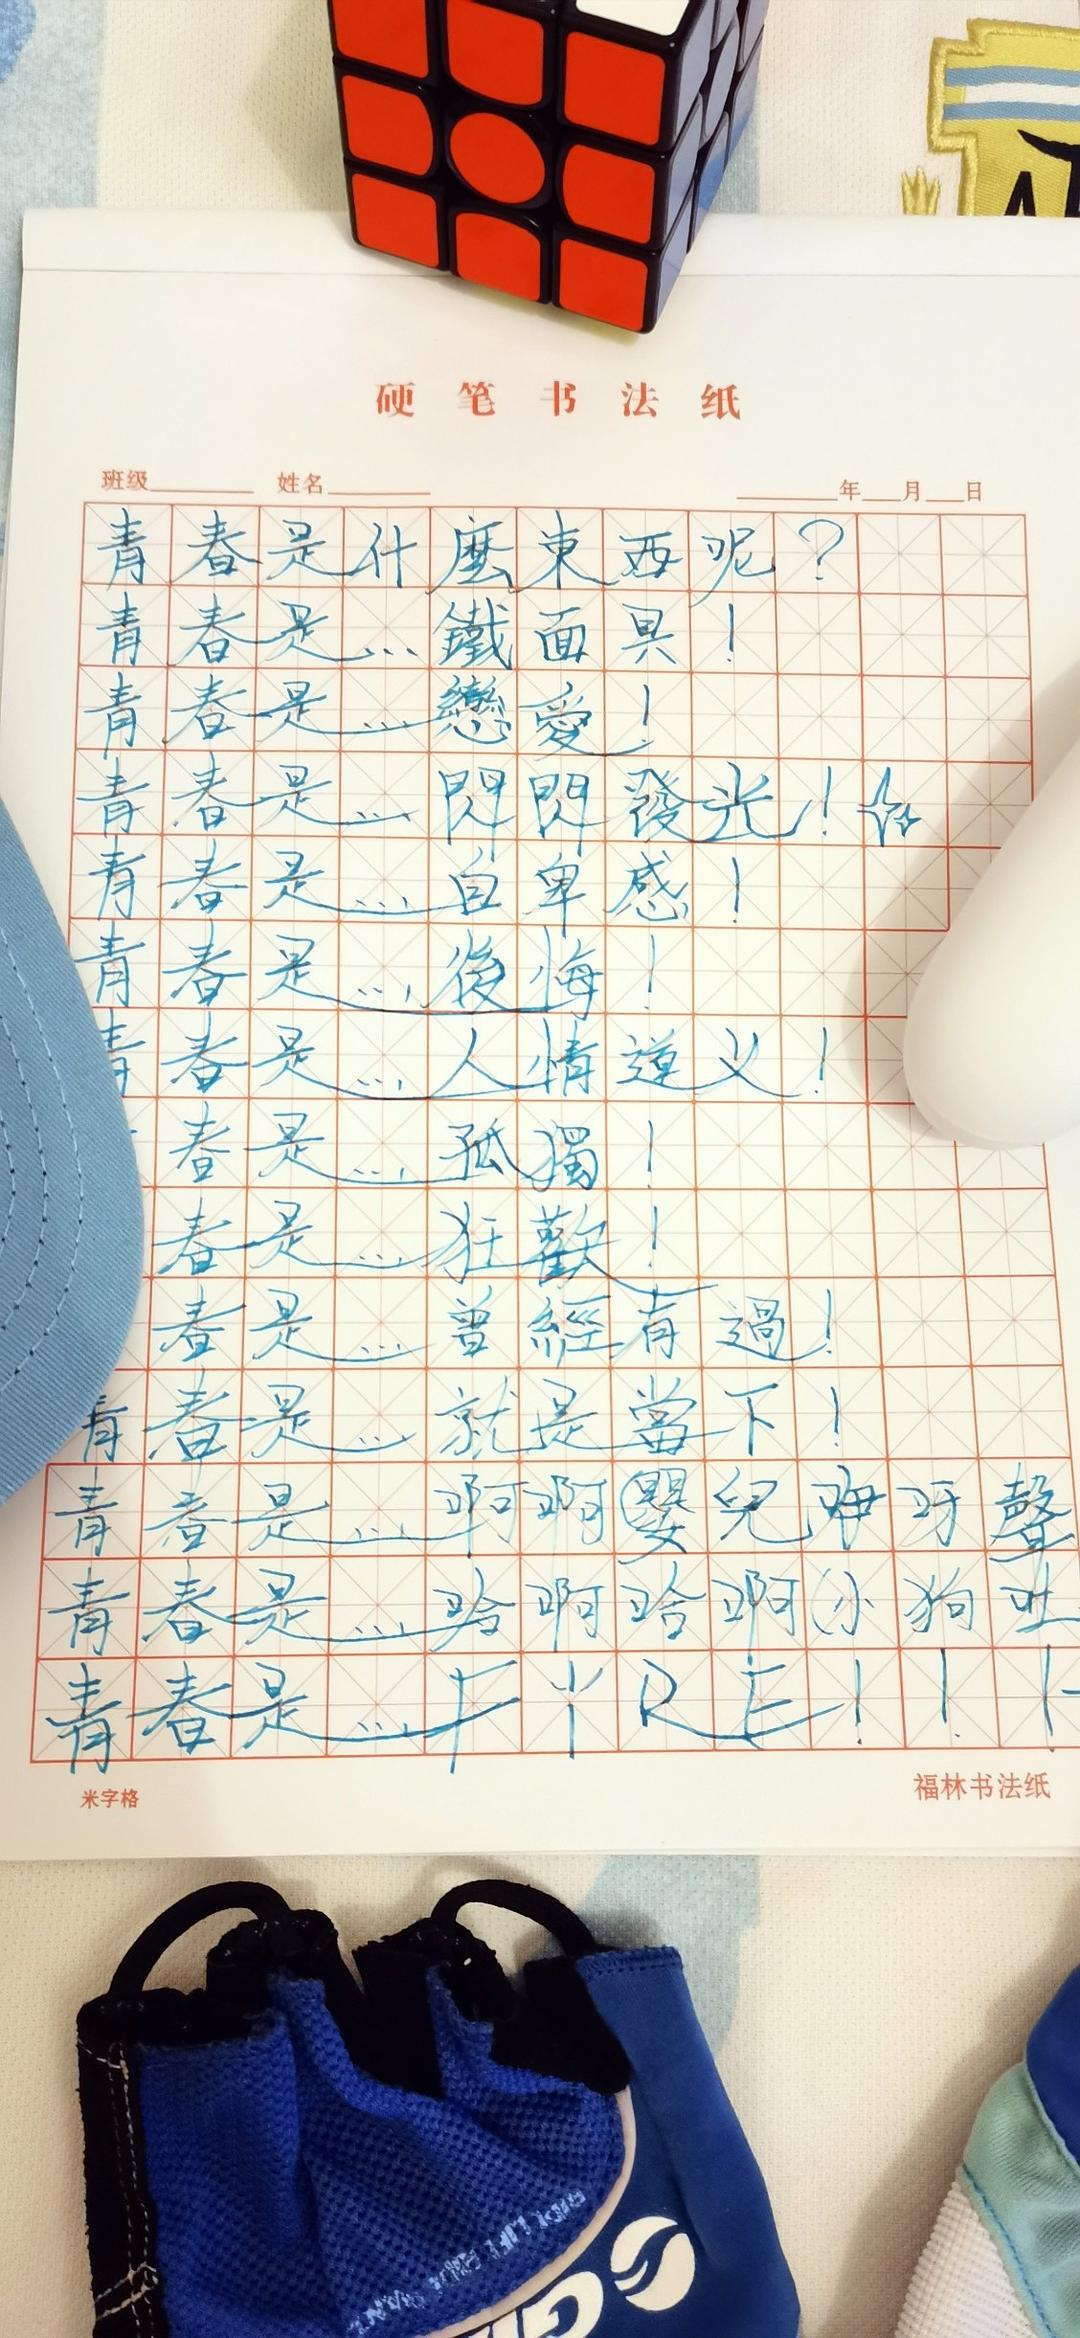 硬笔书法纸
班级 姓名 年 月 日
青春是什麼東西呢？
青春是...鐵面具！
青春是...戀愛！
青春是...閃閃發光！
青春是...自卑感！
青春是...後悔！
青春是...人情道义！
春是...孤獨！
春是...狂歡！
春是...曾經有過！
青春是...就是當下！
青春是...啊啊(嬰兒咿呀聲
青春是...哈啊哈啊(小狗吐
青春是...FIRE！！！
米字格
福林书法纸